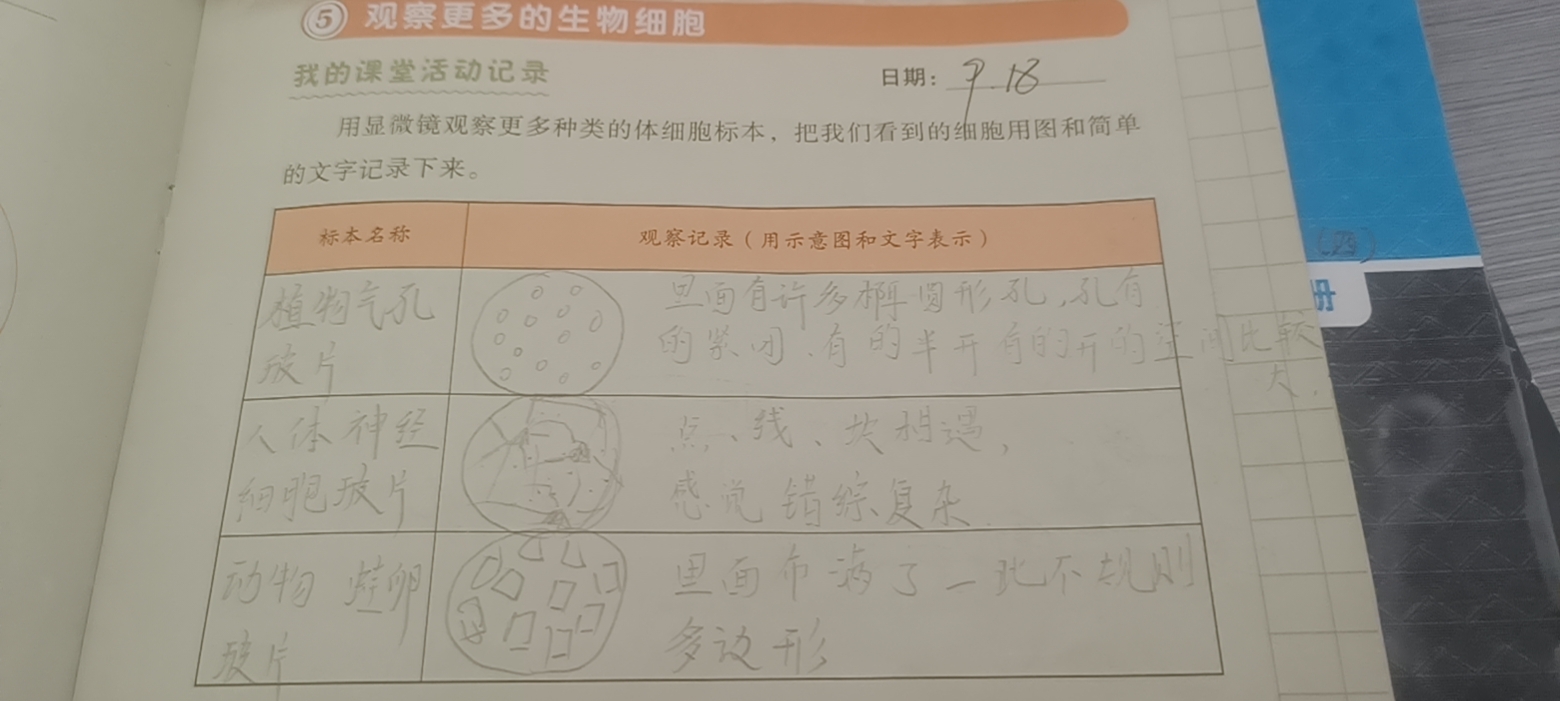 ⑤ 观察更多的生物细胞
我的课堂活动记录
日期：9.18
用显微镜观察更多种类的体细胞标本，把我们看到的细胞用图和简单
的文字记录下来。
标本名称
观察记录（用示意图和文字表示）
植物气孔
玻片
里面有许多椭圆形孔，孔有
的紧闭、有的半开有的开的空间比较
大.
人体神经
细胞玻片
点、线、块相遇，
感觉错综复杂.
动物 蛙卵
玻片
里面布满了一些不规则
多边形
（四）
册